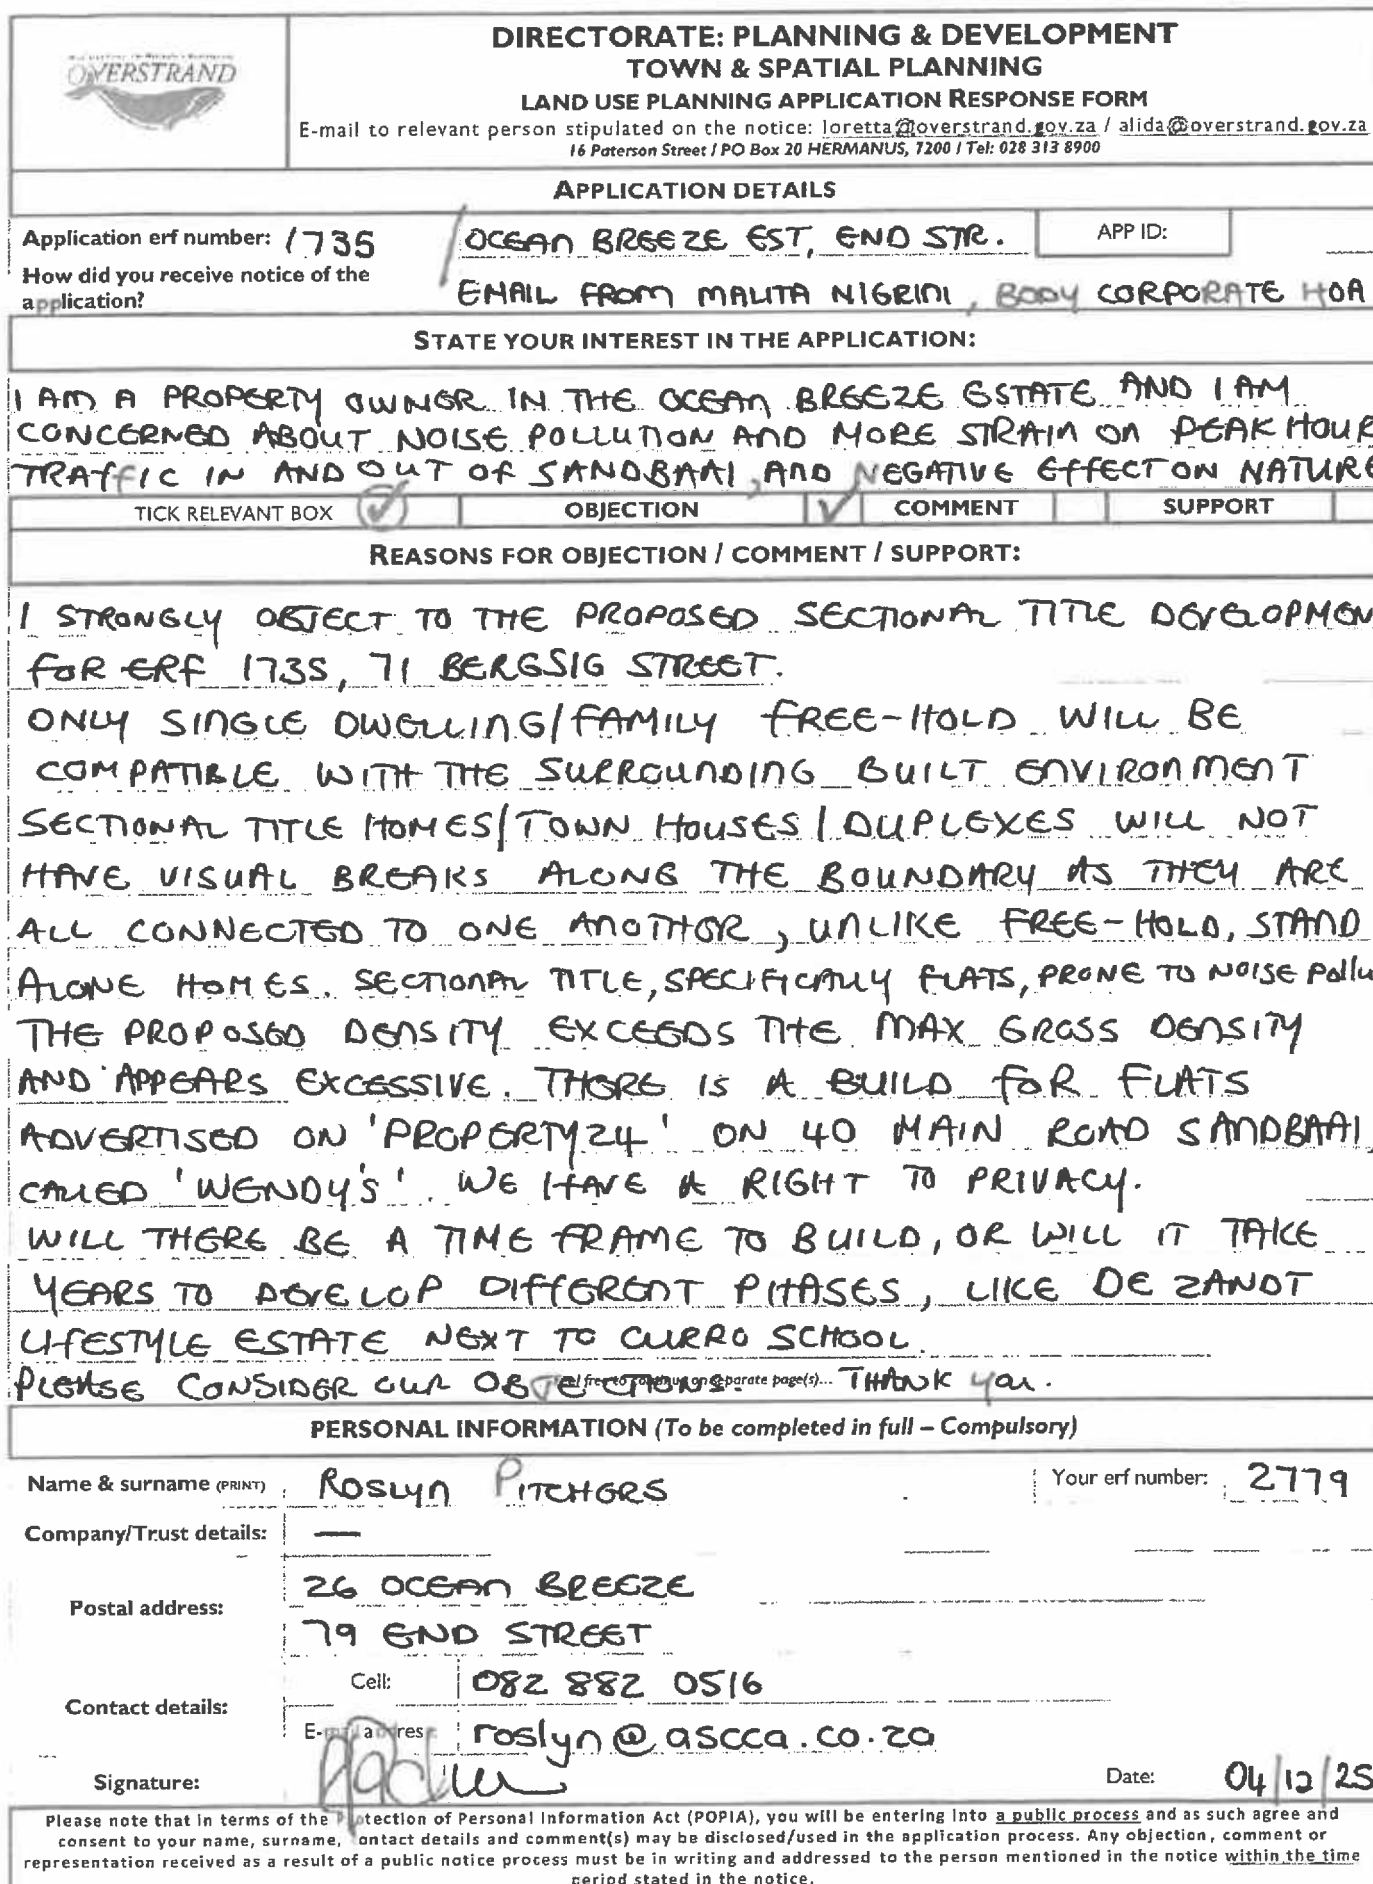 OVERSTRAND
DIRECTORATE: PLANNING & DEVELOPMENT
TOWN & SPATIAL PLANNING
LAND USE PLANNING APPLICATION RESPONSE FORM
E-mail to relevant person stipulated on the notice: loretta@overstrand.gov.za / alida@overstrand.gov.za
16 Paterson Street / PO Box 20 HERMANUS, 7200 / Tel: 028 313 8900
APPLICATION DETAILS
Application erf number: 1735 / OCEAN BREEZE EST, END STR. APP ID:
How did you receive notice of the
application? EMAIL FROM MALITA NIGRINI, BODY CORPORATE HOA
STATE YOUR INTEREST IN THE APPLICATION:
I AM A PROPERTY OWNER IN THE OCEAN BREEZE ESTATE AND I AM
CONCERNED ABOUT NOISE POLLUTION AND MORE STRAIN ON PEAK HOUR
TRAFFIC IN AND OUT OF SANDBAAI, AND NEGATIVE EFFECT ON NATURE
TICK RELEVANT BOX ✓ OBJECTION ✓ COMMENT SUPPORT
REASONS FOR OBJECTION / COMMENT / SUPPORT:
I STRONGLY OBJECT TO THE PROPOSED SECTIONAL TITLE DEVELOPMEN
FOR ERF 1735, 71 BERGSIG STREET.
ONLY SINGLE DWELLING/FAMILY FREE-HOLD WILL BE
COMPATIBLE WITH THE SURROUNDING BUILT ENVIRONMENT
SECTIONAL TITLE HOMES/TOWN HOUSES/DUPLEXES WILL NOT
HAVE VISUAL BREAKS ALONG THE BOUNDARY AS THEY ARE
ALL CONNECTED TO ONE ANOTHER, UNLIKE FREE-HOLD, STAND
ALONE HOMES. SECTIONAL TITLE, SPECIFICALLY FLATS, PRONE TO NOISE Pollu
THE PROPOSED DENSITY EXCEEDS THE MAX GROSS DENSITY
AND APPEARS EXCESSIVE. THERE IS A BUILD FOR FLATS
ADVERTISED ON 'PROPERTY24' ON 40 MAIN ROAD SANDBAAI
CALLED 'WENDY'S'. WE HAVE A RIGHT TO PRIVACY.
WILL THERE BE A TIME FRAME TO BUILD, OR WILL IT TAKE
YEARS TO DEVELOP DIFFERENT PHASES, LIKE DE ZANDT
LIFESTYLE ESTATE NEXT TO CURRO SCHOOL.
PLEASE CONSIDER OUR OBJECTIONS. THANK you.
free to continue on separate page(s)...
PERSONAL INFORMATION (To be completed in full – Compulsory)
Name & surname (PRINT) ROSLYN PITCHERS Your erf number: 2779
Company/Trust details: —
Postal address: 26 OCEAN BREEZE
79 END STREET
Contact details: Cell: 082 882 0516
E-mail addres roslyn@ascca.co.za
Signature: Date: 04/12/25
Please note that in terms of the Protection of Personal Information Act (POPIA), you will be entering into a public process and as such agree and
consent to your name, surname, contact details and comment(s) may be disclosed/used in the application process. Any objection, comment or
representation received as a result of a public notice process must be in writing and addressed to the person mentioned in the notice within the time
period stated in the notice.